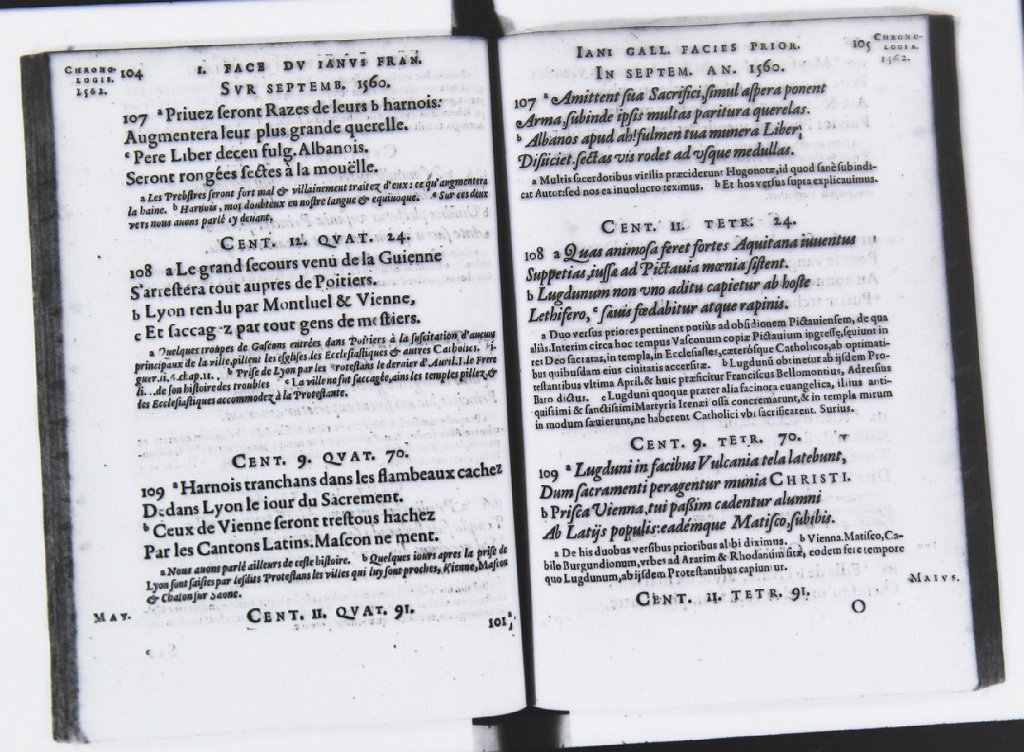 CHRONO-
LOGIE.
1562.
104
I. FACE DV IANVS FRAN.
SVR SEPTEMB. 1560.
107 ª Priuez ſeront Razes de leurs b harnois:
Augmentera leur plus grande querelle.
ᶜ Pere Liber deceu fulg. Albanois.
Seront rongées ſectes à la mouëlle.
a Les Prebſtres ſeront fort mal & villainement traitez d'eux: ce qu'augmentera
la haine. ᵇ Harnois, mot doubteux en noſtre langue & equiuoque. ᶜ Sur ces deux
vers nous auons parlé cy deuant.
CENT. 12. QVAT. 24.
108 a Le grand ſecours venu de la Guienne
S'arreſtera tout aupres de Poitiers.
b Lyon rendu par Montluel & Vienne,
c Et ſaccagez par tout gens de meſtiers.
a Quelques troupes de Gaſcons entrées dans Poitiers à la ſuſcitation d'aucuns
principaux de la ville, pillent les egliſes, les Eccleſiaſtiques & autres Catholics.
ᵇ Priſe de Lyon par les Proteſtans le dernier d'Auril. I. le Frere
de ſon hiſtoire des troubles ᶜ La ville ne fut ſaccagée, ains les temples pillez &
les Eccleſiaſtiques accommodez à la Proteſtante.
CENT. 9. QVAT. 70.
109 ª Harnois tranchans dans les flambeaux cachez
Dedans Lyon le iour du Sacrement.
ᵇ Ceux de Vienne ſeront treſtous hachez
Par les Cantons Latins. Maſcon ne ment.
a Nous auons parlé ailleurs de ceſte hiſtoire. b Quelques iours apres la priſe de
Lyon ſont ſaiſies par leſdits Proteſtans les villes qui luy ſont proches, Vienne, Maſcon
& Chalon ſur Saone.
MAY.
CENT. II. QVAT. 91.
CHRONO-
LOGIA.
1562.
IANI GALL. FACIES PRIOR.
105
IN SEPTEM. AN. 1560.
107 ª Amittent ſua Sacrifici, ſimul aſpera ponent
Arma, ſubinde ipſis multas paritura querelas.
ᵇ Albanos apud ah! fulmen tua munera Liber
Diſiiciet ſectas vis rodet ad vſque medullas.
a Multis ſacerdotibus virilia præciderunt Hugonotæ, id quod ſanè ſubindi-
cat Autor: ſed nos ea inuolucro teximus. b Et hos verſus ſupra explicauimus.
CENT. II. TETR. 24.
108 a Quas animoſa feret fortes Aquitana iuuentus
Suppetias, iuſſa ad Pictauia mœnia ſiſtent.
b Lugdunum non vno aditu capietur ab hoſte
Lethifero, ᶜ ſæuis fœdabitur atque rapinis.
a Duo verſus priores pertinent potiùs ad obſidionem Pictauienſem, de qua
aliàs. Interim circa hoc tempus Vaſconum copiæ Pictauium ingreſſæ, ſæuiunt in
res Deo ſacratas, in templa, in Eccleſiaſtes, cæteróſque Catholicos, ab optimati-
bus quibuſdam eius ciuitatis accerſitæ. b Lugdunū obtinetur ab ijſdem Pro-
teſtantibus vltima April. & huic præficitur Franciſcus Bellomontius, Adrerſus
Baro dictus. c Lugduni quoque præter alia facinora euangelica, illius anti-
quiſſimi & ſanctiſſimi Martyris Irenæi oſſa concremarunt, & in templa mirum
in modum ſæuierunt, ne haberent Catholici vbi ſacrificarent. Surius.
CENT. 9. TETR. 70.
109 ª Lugduni in facibus Vulcania tela latebunt,
Dum ſacramenti peragentur munia CHRISTI.
b Priſca Vienna, tui paſſim cædentur alumni
Ab Latijs populis: eadémque Matiſco, ſubibis.
a De his duobus verſibus prioribus alibi diximus. b Vienna, Matiſco, Ca-
bilo Burgundionum, vrbes ad Ararim & Rhodanum ſitæ, eodem ferè tempore
quo Lugdunum, ab ijſdem Proteſtantibus capiuntur.
MAIVS.
CENT. II. TETR. 91.
O